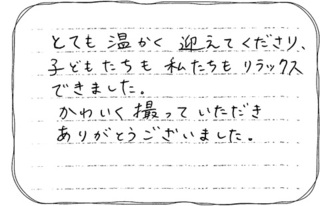 とても 温かく 迎えてくださり、
子どもたちも 私たちも リラックス
できました。
かわいく 撮って いただき
ありがとうございました。